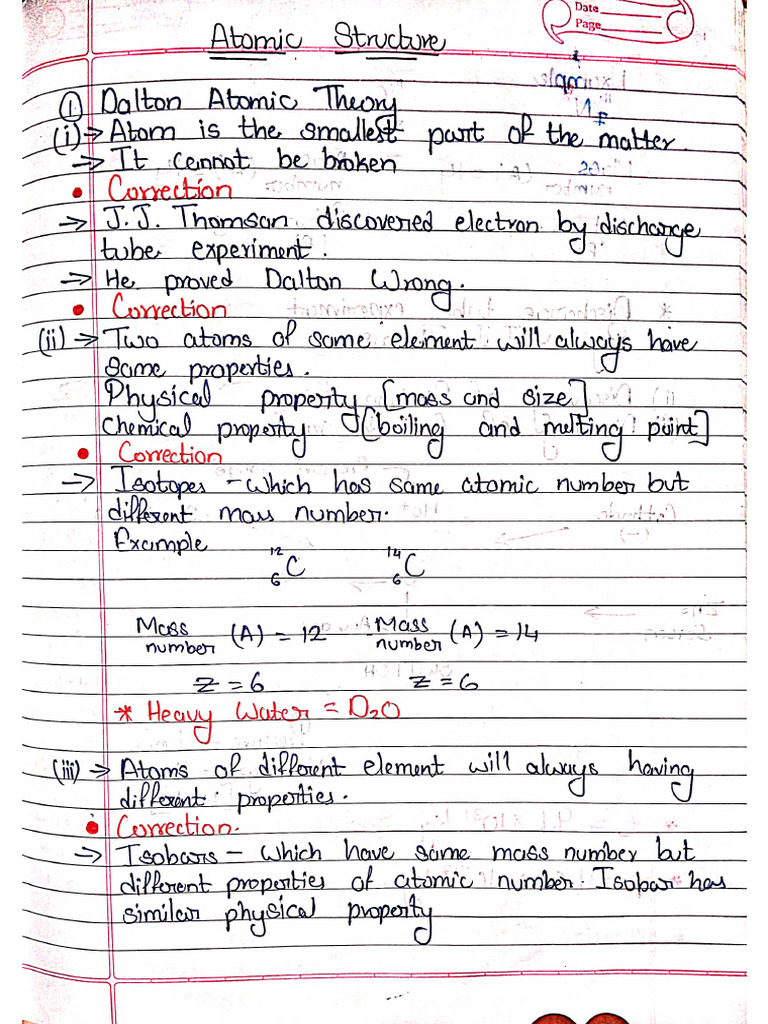 Date
Page
Atomic Structure
① Dalton Atomic Theory
(i)→ Atom is the smallest part of the matter.
→ It cannot be broken
• Correction
→ J.J. Thomson discovered electron by discharge
tube experiment.
→ He proved Dalton Wrong.
• Correction
(ii)→ Two atoms of same element will always have
same properties.
Physical property [mass and size]
Chemical property [boiling and melting point]
• Correction
→ Isotopes - which has same atomic number but
different mass number.
Example
¹²₆C ¹⁴₆C
Mass number (A) = 12 Mass number (A) = 14
Z = 6 Z = 6
* Heavy Water = D₂O
(iii)→ Atoms of different element will always having
different properties.
• Correction.
→ Isobars - which have same mass number but
different properties of atomic number. Isobar has
similar physical property